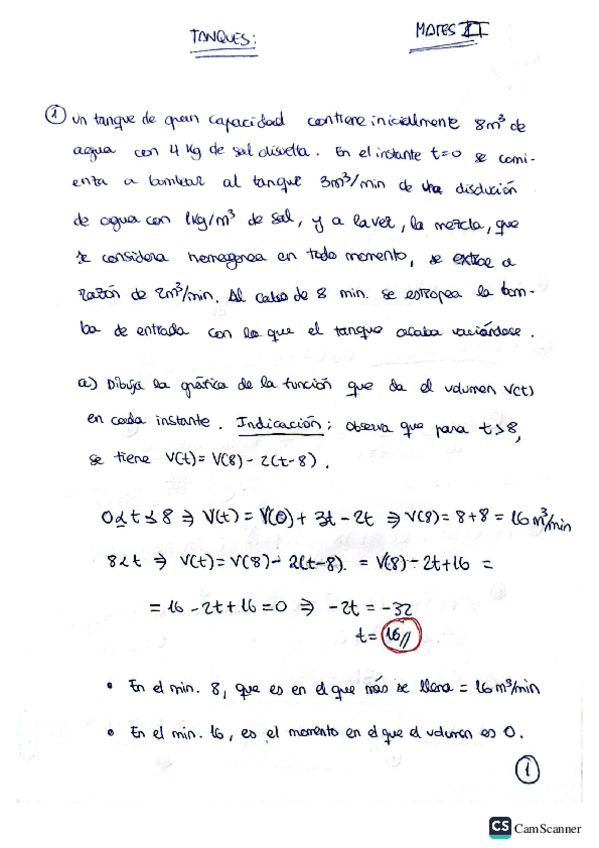 TANQUES:
MATES II
① Un tanque de gran capacidad contiene inicialmente 8m³ de
agua con 4 Kg de sal disuelta. En el instante t=0 se comi-
enza a bombear al tanque 3m³/min de una disolución
de agua con 1kg/m³ de sal, y a la vez, la mezcla, que
se considera homogenea en todo momento, se extrae a
razón de 2m³/min. Al cabo de 8 min. se estropea la bom-
ba de entrada con lo que el tanque acaba vaciándose.
a) Dibuja la gráfica de la función que da el volumen V(t)
en cada instante. Indicación: observa que para t>8,
se tiene V(t)= V(8) - 2(t-8).
0≤t≤8 ⇒ V(t) = V(0) + 3t - 2t ⇒ V(8) = 8+8 = 16 m³/min
8<t ⇒ V(t) = V(8) - 2(t-8). = V(8) - 2t + 16 =
= 16 - 2t + 16 = 0 ⇒ -2t = -32
t = 16//
• En el min. 8, que es en el que más se llena = 16 m³/min
• En el min. 16, es el momento en el que el volumen es 0.
①
CS CamScanner